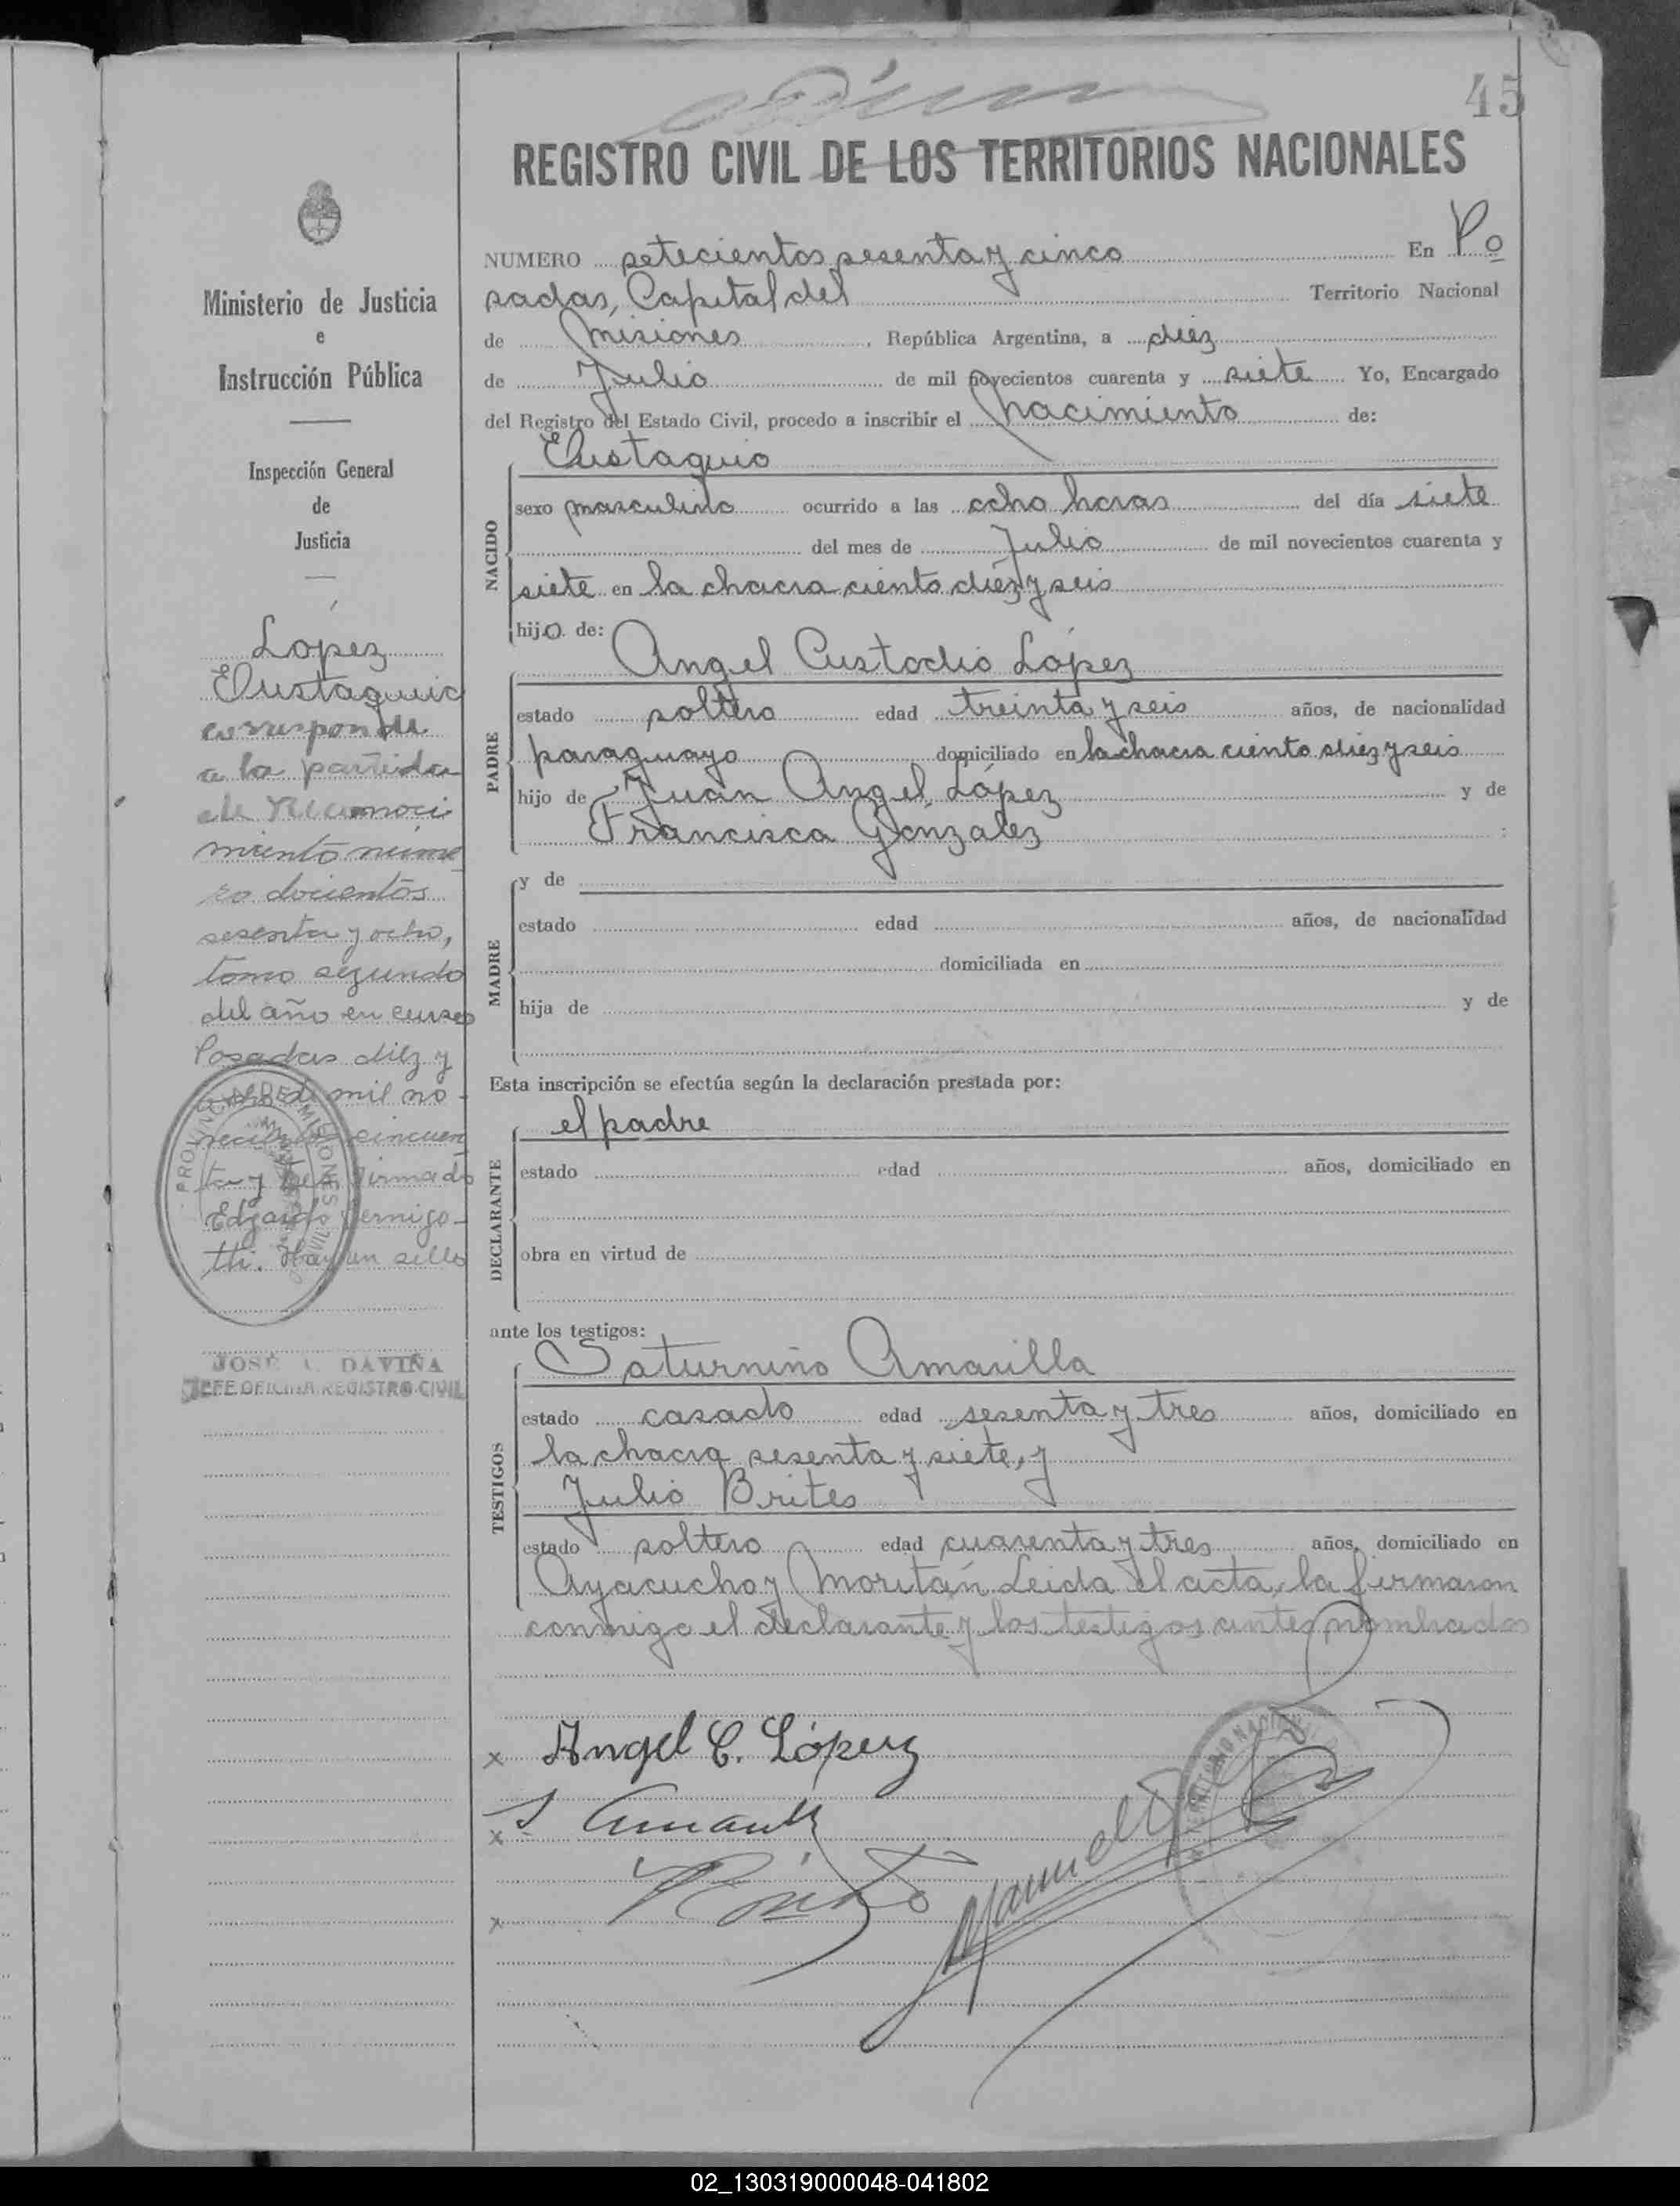 45
REGISTRO CIVIL DE LOS TERRITORIOS NACIONALES
Ministerio de Justicia
e
Instrucción Pública
Inspección General
de
Justicia
López
Eustaquio
corresponde
a la partida
de reconoci
miento núme
ro docientos
sesenta y ocho,
tomo segundo
del año en curso
Posadas diez y
mil no-
vecientos cincuen
ta y tres Firmado
Edgardo
Hay un sello
PROVINCIA DE MISIONES
JOSÉ DAVIÑA
JEFE OFICINA REGISTRO CIVIL
NUMERO setecientos sesenta y cinco En Po
sadas, Capital del Territorio Nacional
de Misiones, República Argentina, a diez
de Julio de mil novecientos cuarenta y siete Yo, Encargado
del Registro del Estado Civil, procedo a inscribir el nacimiento de:
NACIDO
Eustaquio
sexo masculino ocurrido a las ocho horas del día siete
del mes de Julio de mil novecientos cuarenta y
siete en la chacra ciento diez y seis
hijo de:
PADRE
Angel Custodio López
estado soltero edad treinta y seis años, de nacionalidad
paraguayo domiciliado en la chacra ciento diez y seis
hijo de Juan Angel López y de
Francisca González ;
MADRE
y de
estado edad años, de nacionalidad
domiciliada en
hija de y de
Esta inscripción se efectúa según la declaración prestada por:
DECLARANTE
el padre
estado edad años, domiciliado en
obra en virtud de
ante los testigos:
TESTIGOS
Saturnino Amarilla
estado casado edad sesenta y tres años, domiciliado en
la chacra sesenta y siete, y
Julio Brites
estado soltero edad cuarenta y tres años, domiciliado en
Ayacucho y Moritán Leida el acta, la firmaron
conmigo el declarante y los testigos antes nombrados
x Angel C. López
x
x
02_130319000048-041802